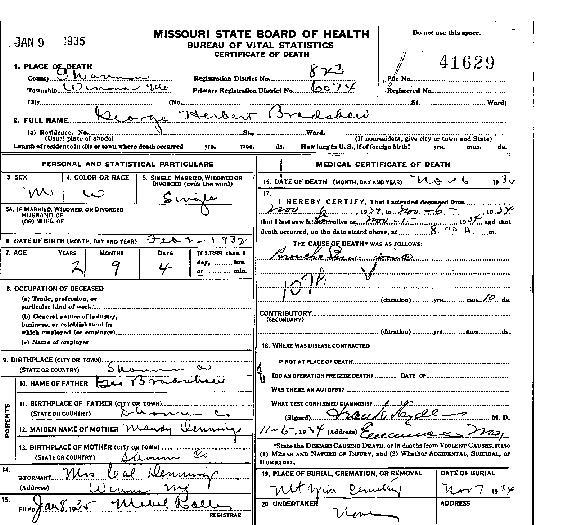 MISSOURI STATE BOARD OF HEALTH
BUREAU OF VITAL STATISTICS
CERTIFICATE OF DEATH
Do not use this space.
JAN 9 1935
41629
1. PLACE OF DEATH
County
Township
City
Registration District No. 823
Primary Registration District No. 6074
(No.
File No.
Registered No.
St. Ward)
2. FULL NAME George Herbert Bradshaw
(a) Residence. No. St. Ward.
(Usual place of abode)
(If nonresident, give city or town and State)
Length of residence in city or town where death occurred yrs. mos. ds.
How long in U.S., if of foreign birth? yrs. mos. ds.
PERSONAL AND STATISTICAL PARTICULARS
3. SEX
M
4. COLOR OR RACE
W
5. SINGLE, MARRIED, WIDOWED OR DIVORCED (write the word)
Single
5A. IF MARRIED, WIDOWED, OR DIVORCED
HUSBAND OF
(OR) WIFE OF
6. DATE OF BIRTH (MONTH, DAY AND YEAR) Feb 2 - 1932
7. AGE YEARS MONTHS DAYS
2 9 4
If LESS than 1 day, hrs. or min.
8. OCCUPATION OF DECEASED
(a) Trade, profession, or particular kind of work
(b) General nature of industry, business, or establishment in which employed (or employer)
(c) Name of employer
9. BIRTHPLACE (CITY OR TOWN)
(STATE OR COUNTRY)
Shannon Co
PARENTS
10. NAME OF FATHER Geo Bradshaw
11. BIRTHPLACE OF FATHER (CITY OR TOWN)
(STATE OR COUNTRY) Shannon Co
12. MAIDEN NAME OF MOTHER
13. BIRTHPLACE OF MOTHER (CITY OR TOWN)
(STATE OR COUNTRY) Shannon Co
14.
INFORMANT Mrs
(Address)
15.
FILED Jan 8, 1935
REGISTRAR
MEDICAL CERTIFICATE OF DEATH
16. DATE OF DEATH (MONTH, DAY AND YEAR) Nov 6 1934
17.
I HEREBY CERTIFY, That I attended deceased from
Nov 1934 to Nov - 6 - 1934
that I last saw h alive on Nov 1934 and that
death occurred, on the date stated above, at m.
THE CAUSE OF DEATH WAS AS FOLLOWS:
107A
(duration) yrs. mos. 10 ds.
CONTRIBUTORY
(SECONDARY)
(duration) yrs. mos. ds.
18. WHERE WAS DISEASE CONTRACTED
IF NOT AT PLACE OF DEATH
DID AN OPERATION PRECEDE DEATH? DATE OF
WAS THERE AN AUTOPSY?
WHAT TEST CONFIRMED DIAGNOSIS?
(Signed) Frank M. D.
11-6-1934 (Address) Eminence Mo
*State the DISEASE CAUSING DEATH, or in deaths from VIOLENT CAUSES, state
(1) MEANS AND NATURE OF INJURY, and (2) Whether ACCIDENTAL, SUICIDAL, or
HOMICIDAL.
19. PLACE OF BURIAL, CREMATION, OR REMOVAL
DATE OF BURIAL
Mt Zion Cemetery
Nov 7 1934
20. UNDERTAKER
ADDRESS
None